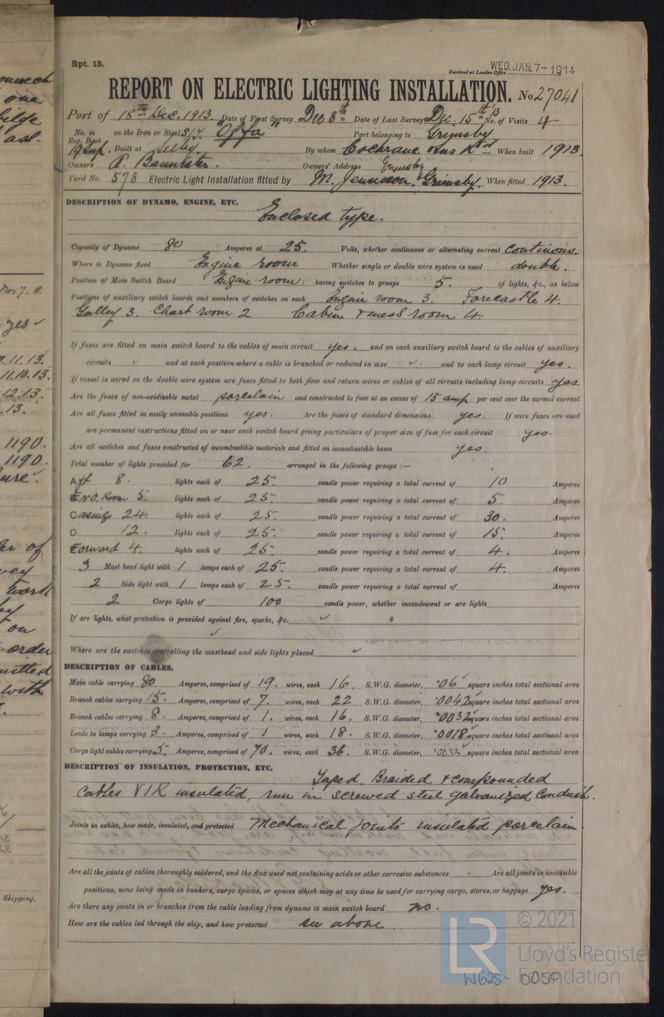 Rpt. 13.
WED. JAN. 7 - 1914
Received at London Office
REPORT ON ELECTRIC LIGHTING INSTALLATION. No 27041
Port of 18th Dec. 1913. Date of First Survey Dec 8th Date of Last Survey Dec. 15th 13 No. of Visits 4
No. in Reg. Book on the Iron or Steel S.T. "Offa" Port belonging to Grimsby
Built at Selby By whom Cochrane & Sons Ltd When built 1913.
Owners A. Bannister. Owners' Address Grimsby
Yard No. 578 Electric Light Installation fitted by M. Jennison. Grimsby. When fitted 1913.
DESCRIPTION OF DYNAMO, ENGINE, ETC.
Enclosed type.
Capacity of Dynamo 80 Amperes at 25. Volts, whether continuous or alternating current Continous.
Where is Dynamo fixed Engine room Whether single or double wire system is used double.
Position of Main Switch Board Engine room: having switches to groups 5. of lights, &c., as below
Positions of auxiliary switch boards and numbers of switches on each Engine room 3. Forecastle 4.
Galley 3. Chart room 2 Cabin & mess room 4.
If fuses are fitted on main switch board to the cables of main circuit yes. and on each auxiliary switch board to the cables of auxiliary
circuits ✓ and at each position where a cable is branched or reduced in size ✓ and to each lamp circuit yes.
If vessel is wired on the double wire system are fuses fitted to both flow and return wires or cables of all circuits including lamp circuits yes
Are the fuses of non-oxidizable metal porcelain and constructed to fuse at an excess of 15 amp per cent over the normal current
Are all fuses fitted in easily accessible positions yes. Are the fuses of standard dimensions yes. If wire fuses are used
are permanent instructions fitted on or near each switch board giving particulars of proper size of fuse for each circuit yes
Are all switches and fuses constructed of incombustible materials and fitted on incombustible bases yes.
Total number of lights provided for 62. arranged in the following groups :—
Aft 8. lights each of 25. candle power requiring a total current of 10 Amperes
Eng. Room 5. lights each of 25. candle power requiring a total current of 5. Amperes
Casing 24. lights each of 25. candle power requiring a total current of 30. Amperes
D 12. lights each of 25. candle power requiring a total current of 15. Amperes
Forward 4. lights each of 25. candle power requiring a total current of 4. Amperes
3 Mast head light with 1 lamps each of 25 candle power requiring a total current of 4. Amperes
2 Side light with 1 lamps each of 25. candle power requiring a total current of Amperes
2 Cargo lights of 100 candle power, whether incandescent or arc lights
If arc lights, what protection is provided against fire, sparks, &c. ✓
Where are the switches controlling the masthead and side lights placed ✓
DESCRIPTION OF CABLES.
Main cable carrying 80 Amperes, comprised of 19. wires, each 16. S.W.G. diameter, ·06 square inches total sectional area
Branch cables carrying 15. Amperes, comprised of 7. wires, each 22 S.W.G. diameter, ·0042 square inches total sectional area
Branch cables carrying 8. Amperes, comprised of 1. wires, each 16. S.W.G. diameter, ·0032 square inches total sectional area
Leads to lamps carrying 3. Amperes, comprised of 1 wires, each 18. S.W.G. diameter, ·0018 square inches total sectional area
Cargo light cables carrying 5. Amperes, comprised of 70. wires, each 36. S.W.G. diameter, ·0032 square inches total sectional area
DESCRIPTION OF INSULATION, PROTECTION, ETC.
Taped, Braided & compounded
Cables V I R insulated, run in screwed steel galvanized Conduit.
Joints in cables, how made, insulated, and protected Mechanical joints insulated porcelain.
Are all the joints of cables thoroughly soldered, and the flux used not containing acids or other corrosive substances Are all joints in accessible
positions, none being made in bunkers, cargo spaces, or spaces which may at any time be used for carrying cargo, stores, or baggage yes.
Are there any joints in or branches from the cable leading from dynamo to main switch board no.
How are the cables led through the ship, and how protected as above
© 2021
LR Lloyd's Register Foundation
W625-0059
Nov 7. 11
yes ✓
7.11.13.
11.10.13.
12.13.
.13.
1190.
1190.
Shipping.